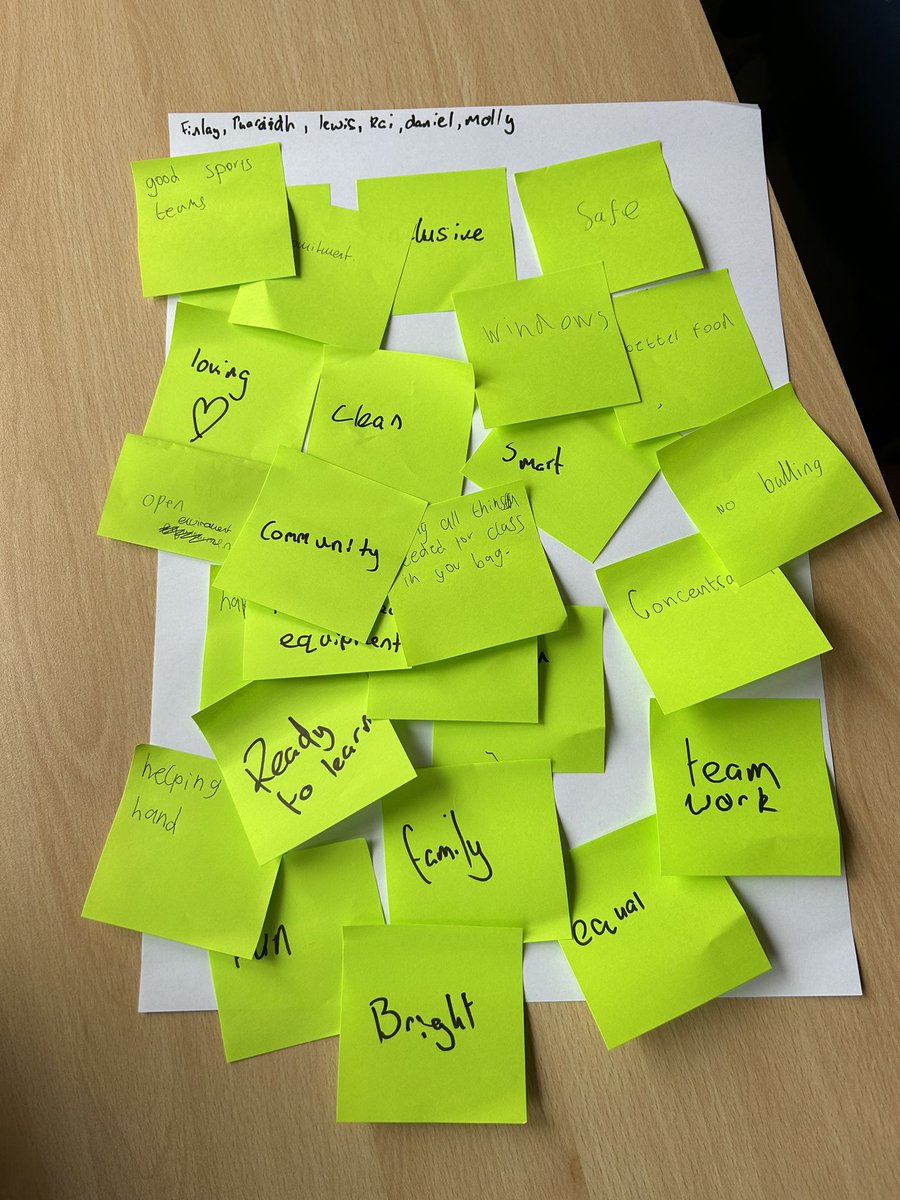 Finlay, Pharaidh, lewis, Kai, daniel, Molly
good sports
teams
mitment.
lusive
Safe
windows
better food
loving
clean
Smart
NO bulling
open
enviroment
Community
g all things
eeded for class
in you bag.
Concentra
ha
equipment
Ready
to learn
team
work
helping
hand
family
equal
un
Bright